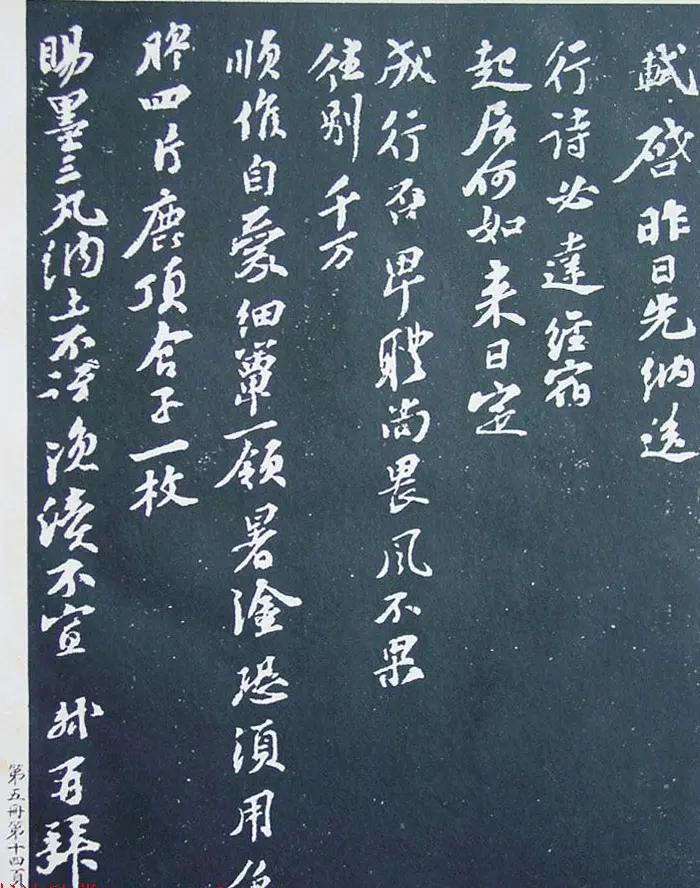 軾啓昨日先納送
行詩必達經宿
起居何如来日定
成行否卑體尚畏風不果
往別千万
順候自愛細簟一領暑塗恐須用
脾四片鹿頂合子一枚
賜墨三丸納上不訝浼瀆不宣 軾再拜
第五冊第十四頁